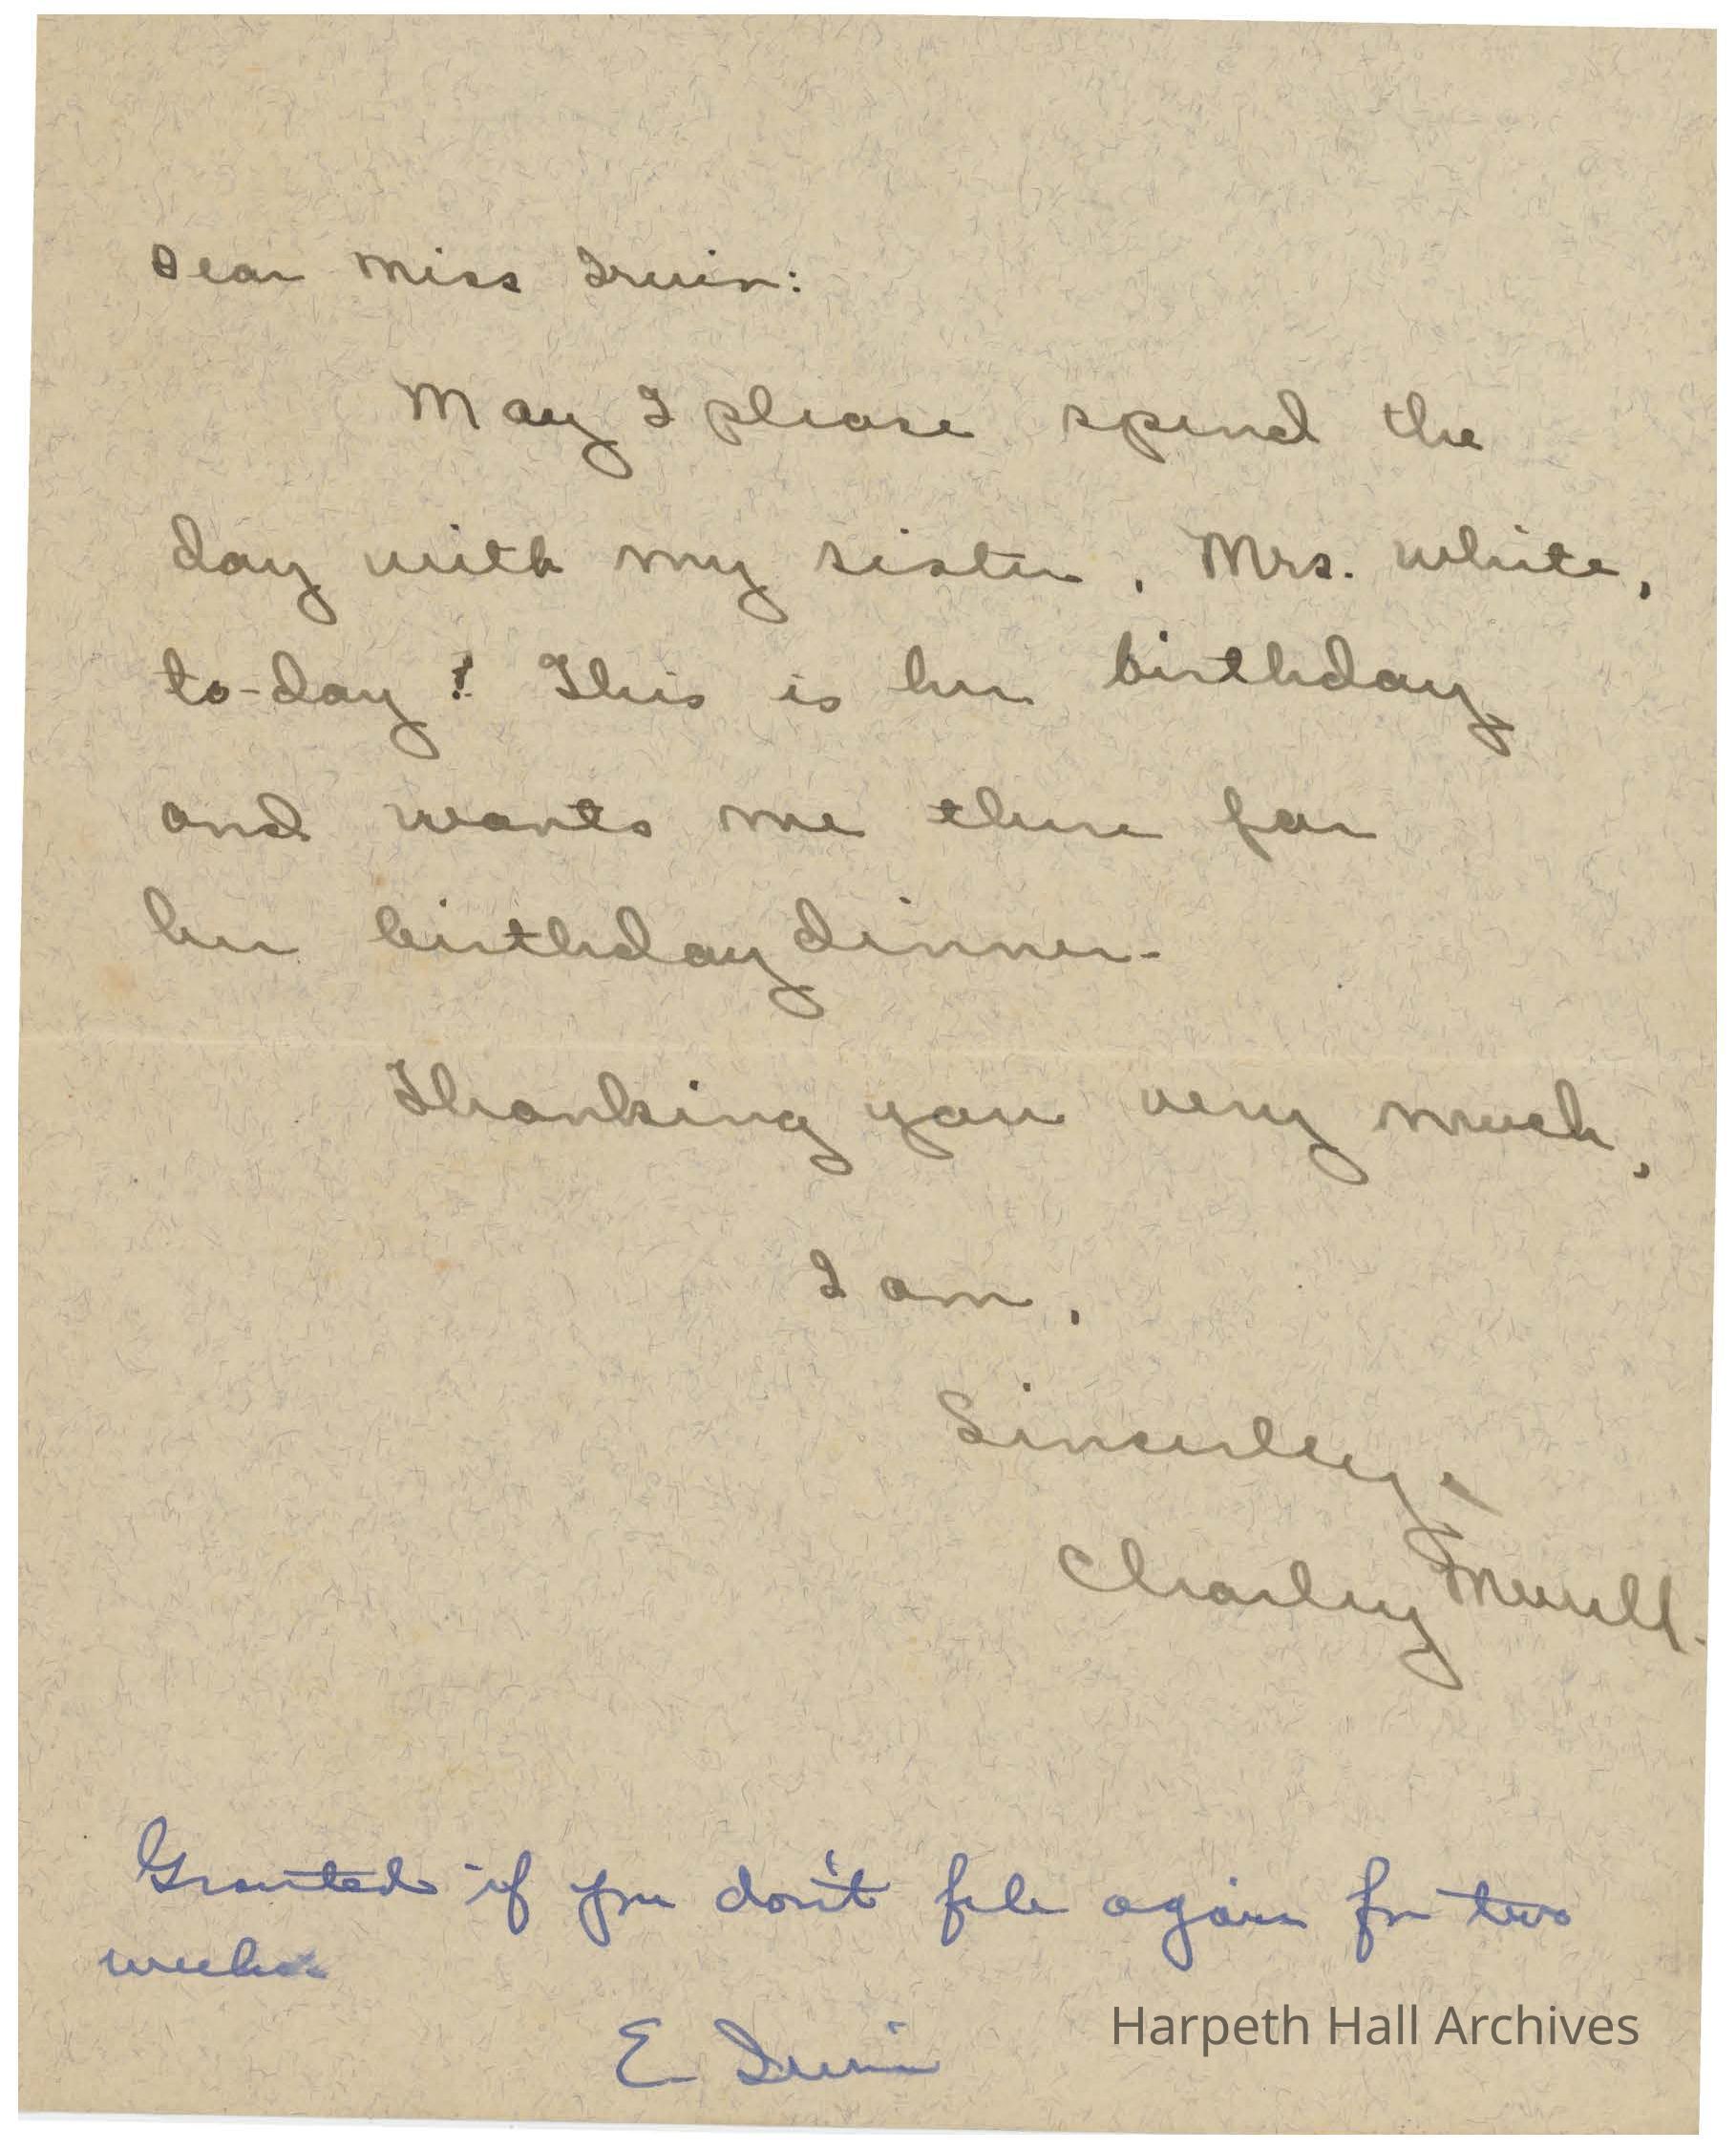 Dear Miss Irwin:
May I please spend the
day with my sister, Mrs. White,
to-day? This is her birthday
and wants me there for
her birthday dinner.
Thanking you very much,
I am,
Sincerley,
Charley Murrell.
Granted if you don't file again for two
weeks
E. Irwin
Harpeth Hall Archives